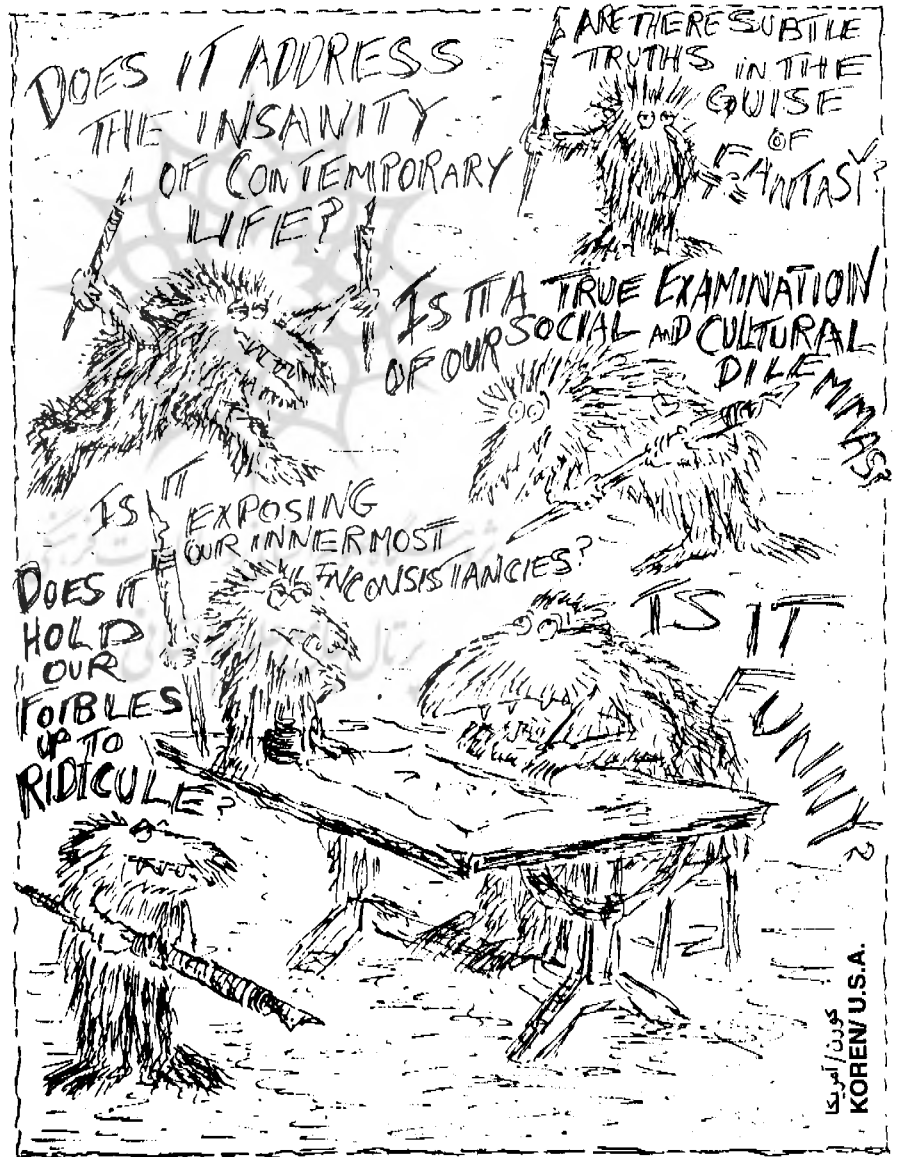 DOES IT ADDRESS
THE INSANITY
OF CONTEMPORARY
LIFE?
ARE THERE SUBTLE
TRUTHS IN THE
GUISE
OF
FANTASY?
IS IT A TRUE EXAMINATION
OF OUR SOCIAL AND CULTURAL
DILEMMAS?
IS IT EXPOSING
OUR INNERMOST
INCONSISTANCIES?
DOES IT
HOLD
OUR
FOIBLES
UP TO
RIDICULE?
IS IT
FUNNY?
کورن / آمریکا
KOREN/ U.S.A.